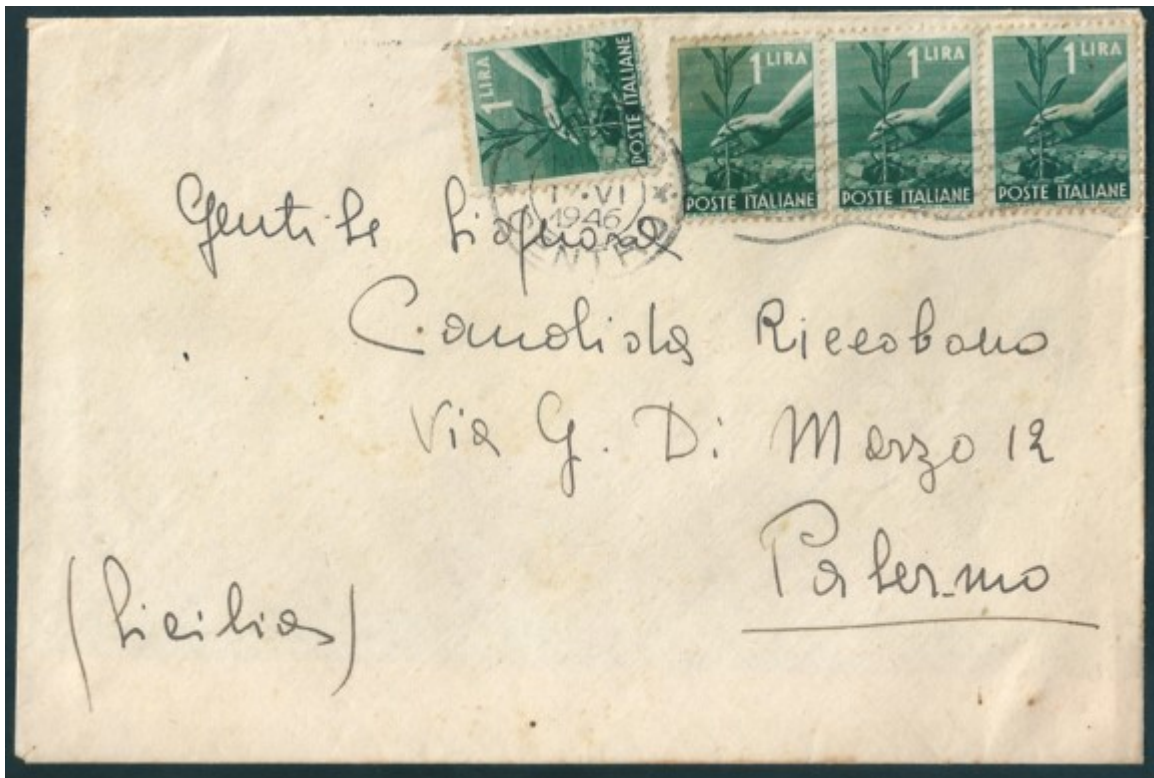 1 LIRA
POSTE ITALIANE
1 LIRA
POSTE ITALIANE
1 LIRA
POSTE ITALIANE
1 LIRA
POSTE ITALIANE
1 · VI
1946
Gentile Signora
Candida Riccobono
Via G. Di Marzo 12
Palermo
(Sicilia)